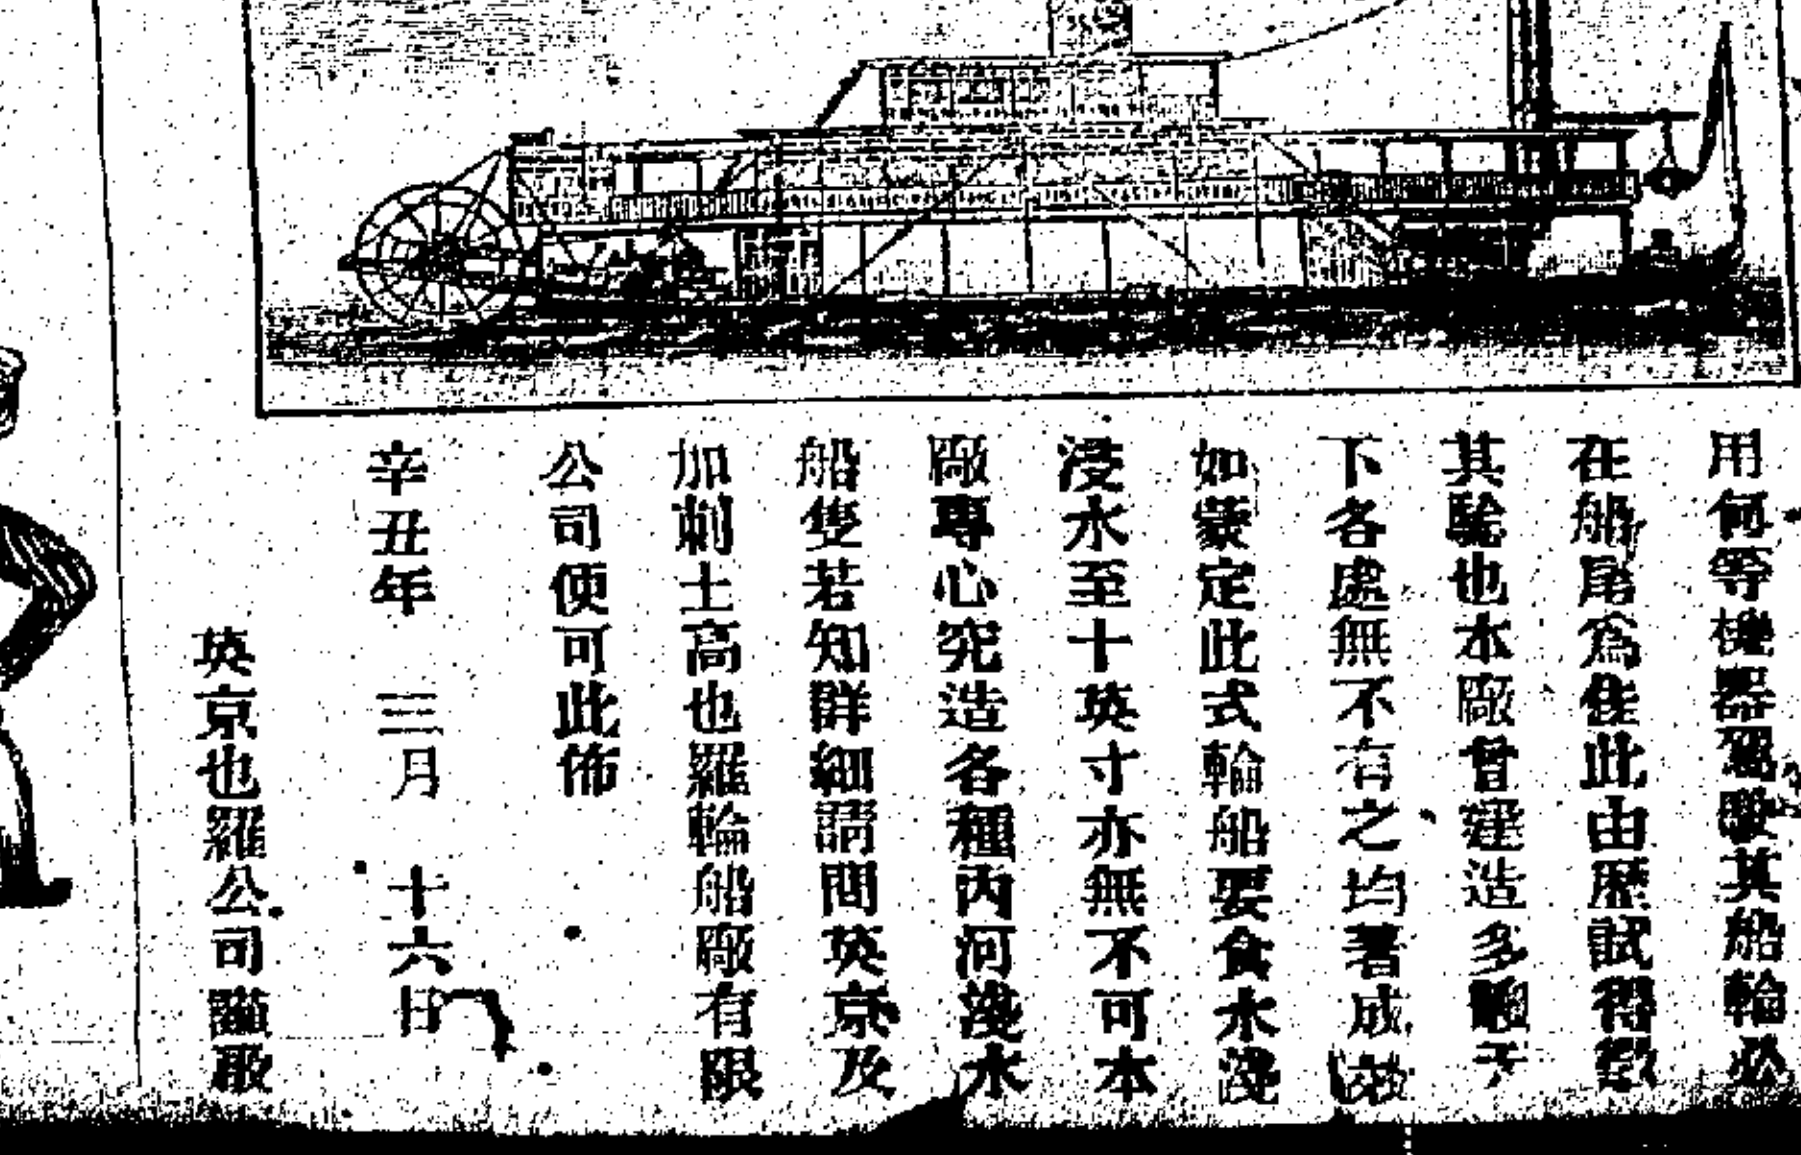 用何等機器駕駛其船輪必
在船尾為佳此由歷試得徵
其驗也本廠曾運造多艘于
下各處無不有之均著成效
如蒙定此式輪船要食水淺
浸水至十英寸亦無不可本
廠專心究造各種內河淺水
船隻若知群細請問英京及
加剌士高也羅輪船廠有限
公司便可此佈
辛丑年 三月 十六日
英京也羅公司謹啟